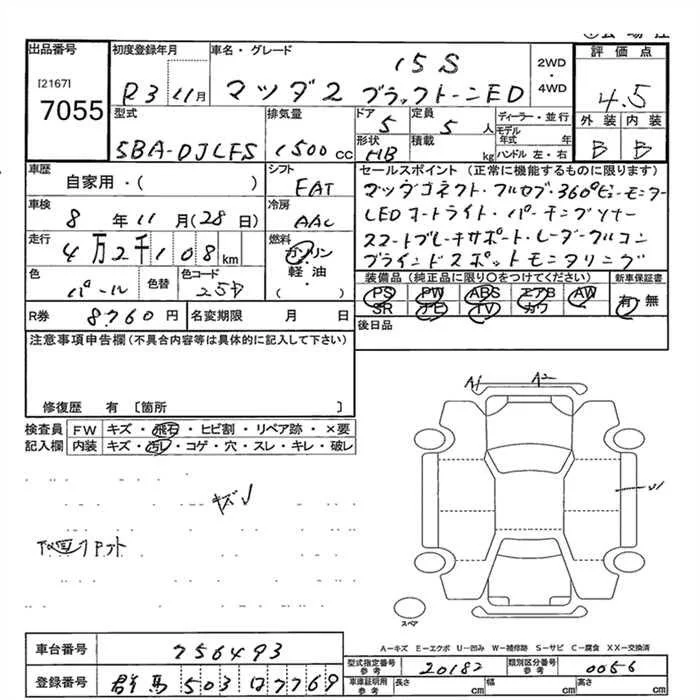 出品番号 初度登録年月 車名・グレード 15S 2WD・4WD 評価点
[2167] 7055 R3 11月 マツダ2 ブラックトーンED 4.5
型式 排気量 ドア 5 定員 5人 ディーラー・並行 外装 内装
5BA-DJLFS 1500cc 形状 HB 積載 kg モデル年式 年 ハンドル 左・右 B B
車歴 シフト セールスポイント (正常に機能するものに限ります)
自家用・( ) FAT マツダコネクト・フルセグ・360°ビューモニター
車検 冷房 LEDオートライト・パーキングソナー
8年11月(28日) AAC スマートブレーキサポート・レーダークルコン
走行 燃料 ブラインドスポットモニタリング
4万2千108km ガソリン 装備品(純正品に限り○をつけてください) 新車保証書
色 色替 色コード 軽油・ PS PW ABS エアB AW 有・無
パール 25D ( ) SR ナビ TV カワ
R券 8760円 名変期限 月 日 後日品
注意事項申告欄(不具合内容等は具体的に記入して下さい)
修復歴 有 〔箇所 〕
検査員 FW キズ・飛石・ヒビ割・リペア跡・×要
記入欄 内装 キズ・汚レ・コゲ・穴・スレ・キレ・破レ
A1 A2
キズ
下回
U1
スペア
A-キズ E-エクボ U-凹み W-補修跡 S-サビ C-腐食 XX-交換済
車台番号 756493 型式指定番号 参考 20182 類別区分番号 参考 0056
登録番号 群馬 503 7769 車庫証明用 参考 長さ cm 幅 cm 高さ cm